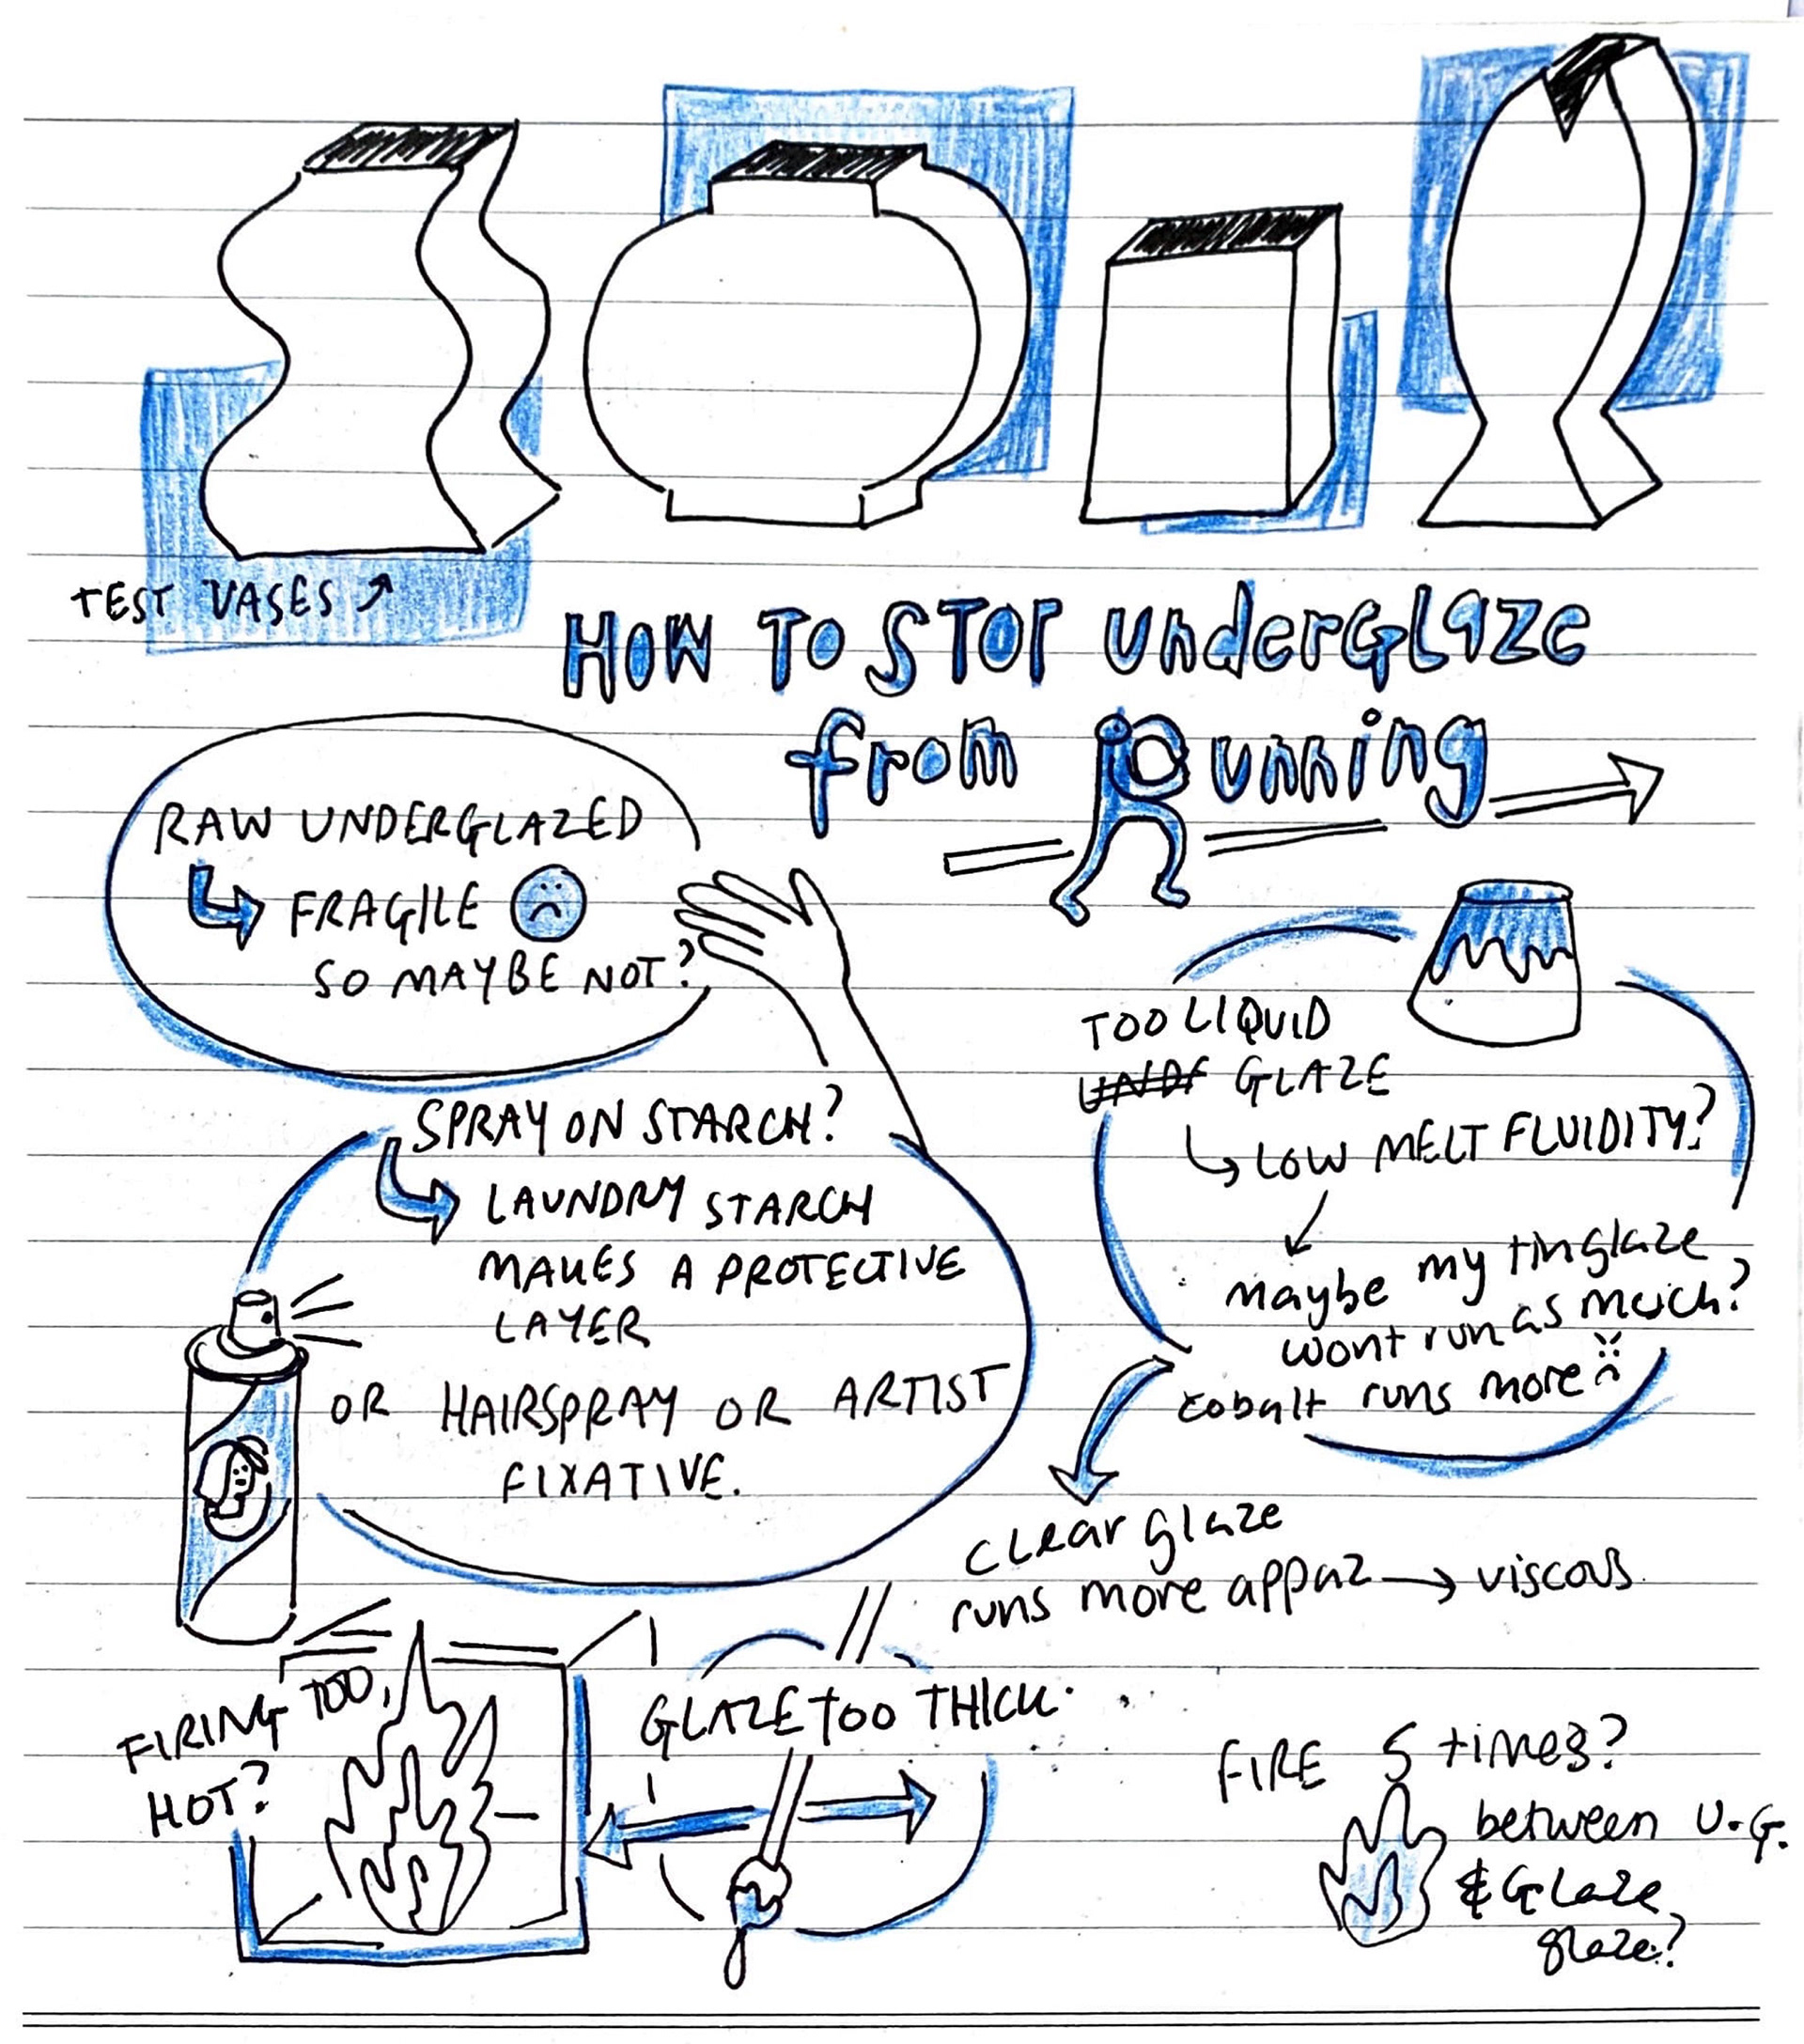 TEST VASES ↗
HOW TO STOP underGlaze
from Running
RAW UNDERGLAZED
FRAGILE
SO MAYBE NOT?
SPRAY ON STARCH?
LAUNDRY STARCH
MAKES A PROTECTIVE
LAYER
OR HAIRSPRAY OR ARTIST
FIXATIVE.
TOO LIQUID
UNDE GLAZE
↳ LOW MELT FLUIDITY?
maybe my tin glaze
wont run as much?
cobalt runs more
clear glaze
runs more appaz → viscous
FIRING TOO
HOT?
GLAZE TOO THICK
FIRE 5 times?
between U.G.
& Glaze
glaze?